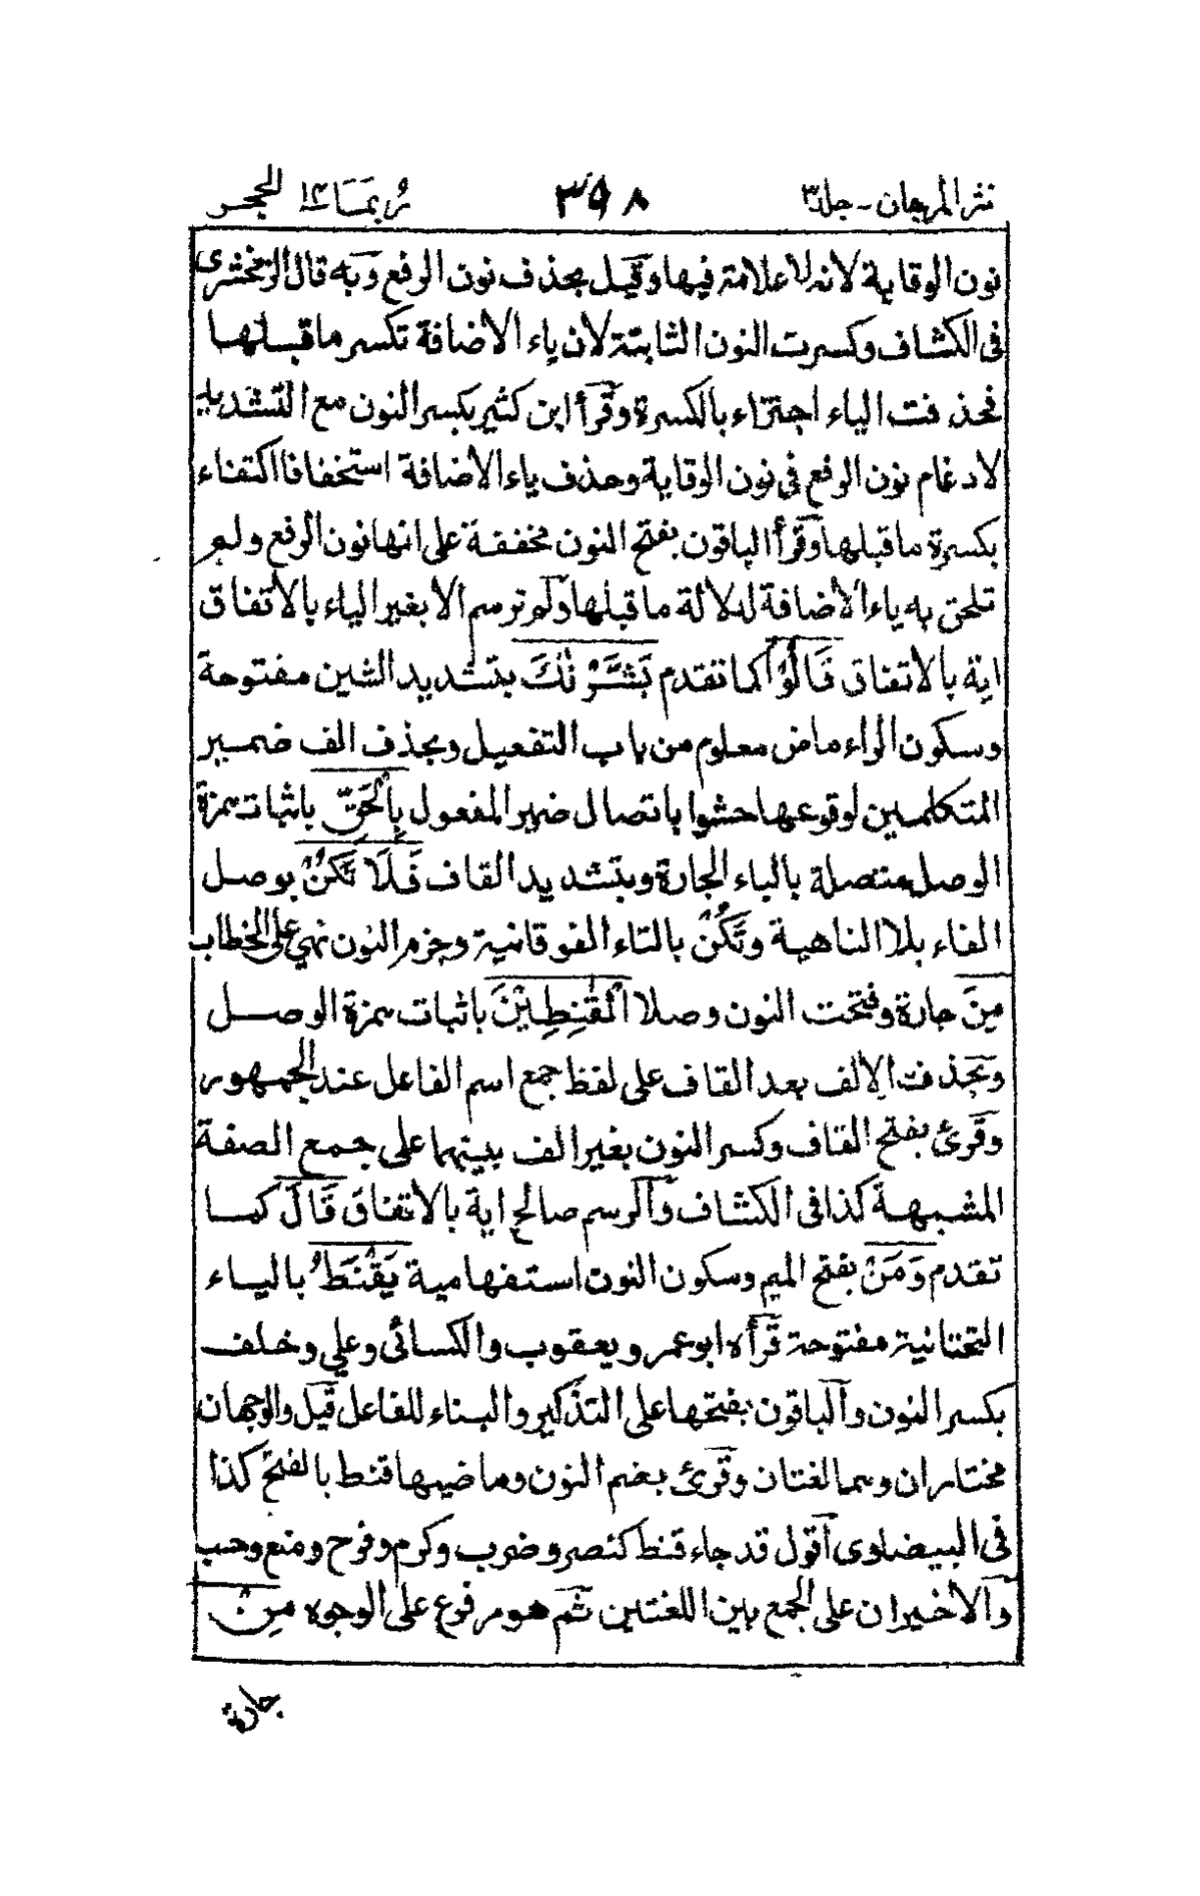 نثر المرجان - جلد ٣ ٣٩٨ رُبَمَا ١٤ الحجر
نون الوقاية لانه لا علامة فيها وقيل بحذف نون الرفع وبه قال الزمخشرى
فى الكشاف وكسرت النون الثابتة لان ياء الاضافة تكسر ما قبلها
فحذفت الياء اجتزاء بالكسرة وقرأ ابن كثير بكسر النون مع التشديد
لادغام نون الرفع فى نون الوقاية وحذف ياء الاضافة استخفافا اكتفاء
بكسرة ما قبلها وقرأ الباقون بفتح النون مخففة على انها نون الرفع ولم
تلحق به ياء الاضافة لدلالة ما قبلها ولم ترسم الا بغير الياء بالاتفاق
اية بالاتفاق قَالُوْا كما تقدم بَشَّرْنٰكَ بتشديد الشين مفتوحة
وسكون الراء ماض معلوم من باب التفعيل وبحذف الف ضمير
المتكلمين لوقوعها حشوا باتصال ضمير المفعول بِالْحَقِّ باثبات همزة
الوصل متصلة بالباء الجارة وبتشديد القاف فَلَا تَكُنْ بوصل
الفاء بلا الناهية وتَكُنْ بالتاء الفوقانية وجزم النون نهي على الخطاب
مِنَ جارة وفتحت النون وصلا الْقٰنِطِيْنَ باثبات همزة الوصل
وبحذف الالف بعد القاف على لفظ جمع اسم الفاعل عند الجمهور
وقرئ بفتح القاف وكسر النون بغير الف بينهما على جمع الصفة
المشبهة كذا فى الكشاف والرسم صالح اية بالاتفاق قَالَ كما
تقدم وَمَنْ بفتح الميم وسكون النون استفهامية يَقْنَطُ بالياء
التحتانية مفتوحة قرأه ابو عمرو ويعقوب والكسائى وعلي وخلف
بكسر النون والباقون بفتحها على التذكير والبناء للفاعل قيل والوجهان
مختاران وهما لغتان وقرئ بضم النون وماضيها قنط بالفتح كذا
فى البيضاوى اقول قد جاء قنط كنصر وضرب وكرم وفرح ومنع وحسب
والاخيران على الجمع بين اللغتين ثم هو مرفوع على الوجوه مِنْ
جارة